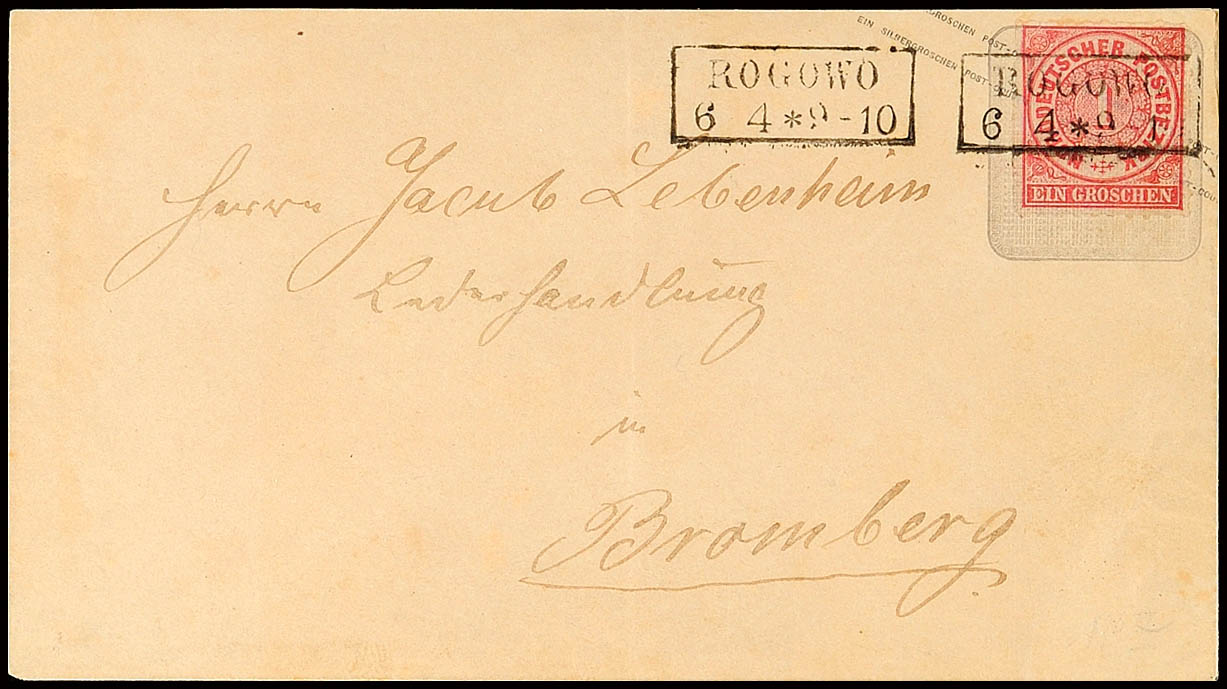 EIN SILBERGROSCHEN POST-COU
GROSCHEN POST-
ROGOWO
6 4 * 9 - 10
ROGOWO
6 4 * 9 1
NORDDEUTSCHER POSTBEZIRK
1
EIN GROSCHEN
Herrn Jacob Lebenheim
Lederhandlung
in
Bromberg